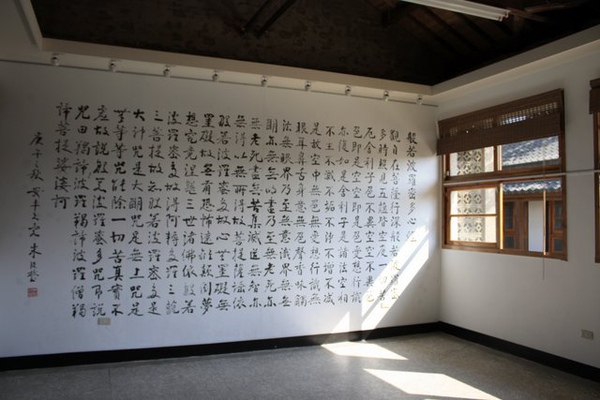 般若波羅密多心經
觀自在菩薩行深般若波羅密
多時照見五蘊皆空度一切苦
厄舍利子色不異空空不異色
色即是空空即是色受想行識
亦復如是舍利子是諸法空相
不生不滅不垢不淨不增不減
是故空中無色無受想行識無
眼耳鼻舌身意無色聲香味觸
法無眼界乃至無意識界無無
明亦無無明盡乃至無老死亦
無老死盡無苦集滅道無智亦
無得以無所得故菩提薩埵依
般若波羅密多故心無罣礙無
罣礙故無有恐怖遠離顛倒夢
想究竟涅槃三世諸佛依般若
波羅密多故得阿耨多羅三藐
三菩提故知般若波羅密多是
大神咒是大明咒是無上咒是
無等等咒能除一切苦真實不
虛故說般若波羅密多咒即說
咒曰羯諦羯諦波羅羯諦波羅僧羯
諦菩提娑婆訶
庚午之秋 朱